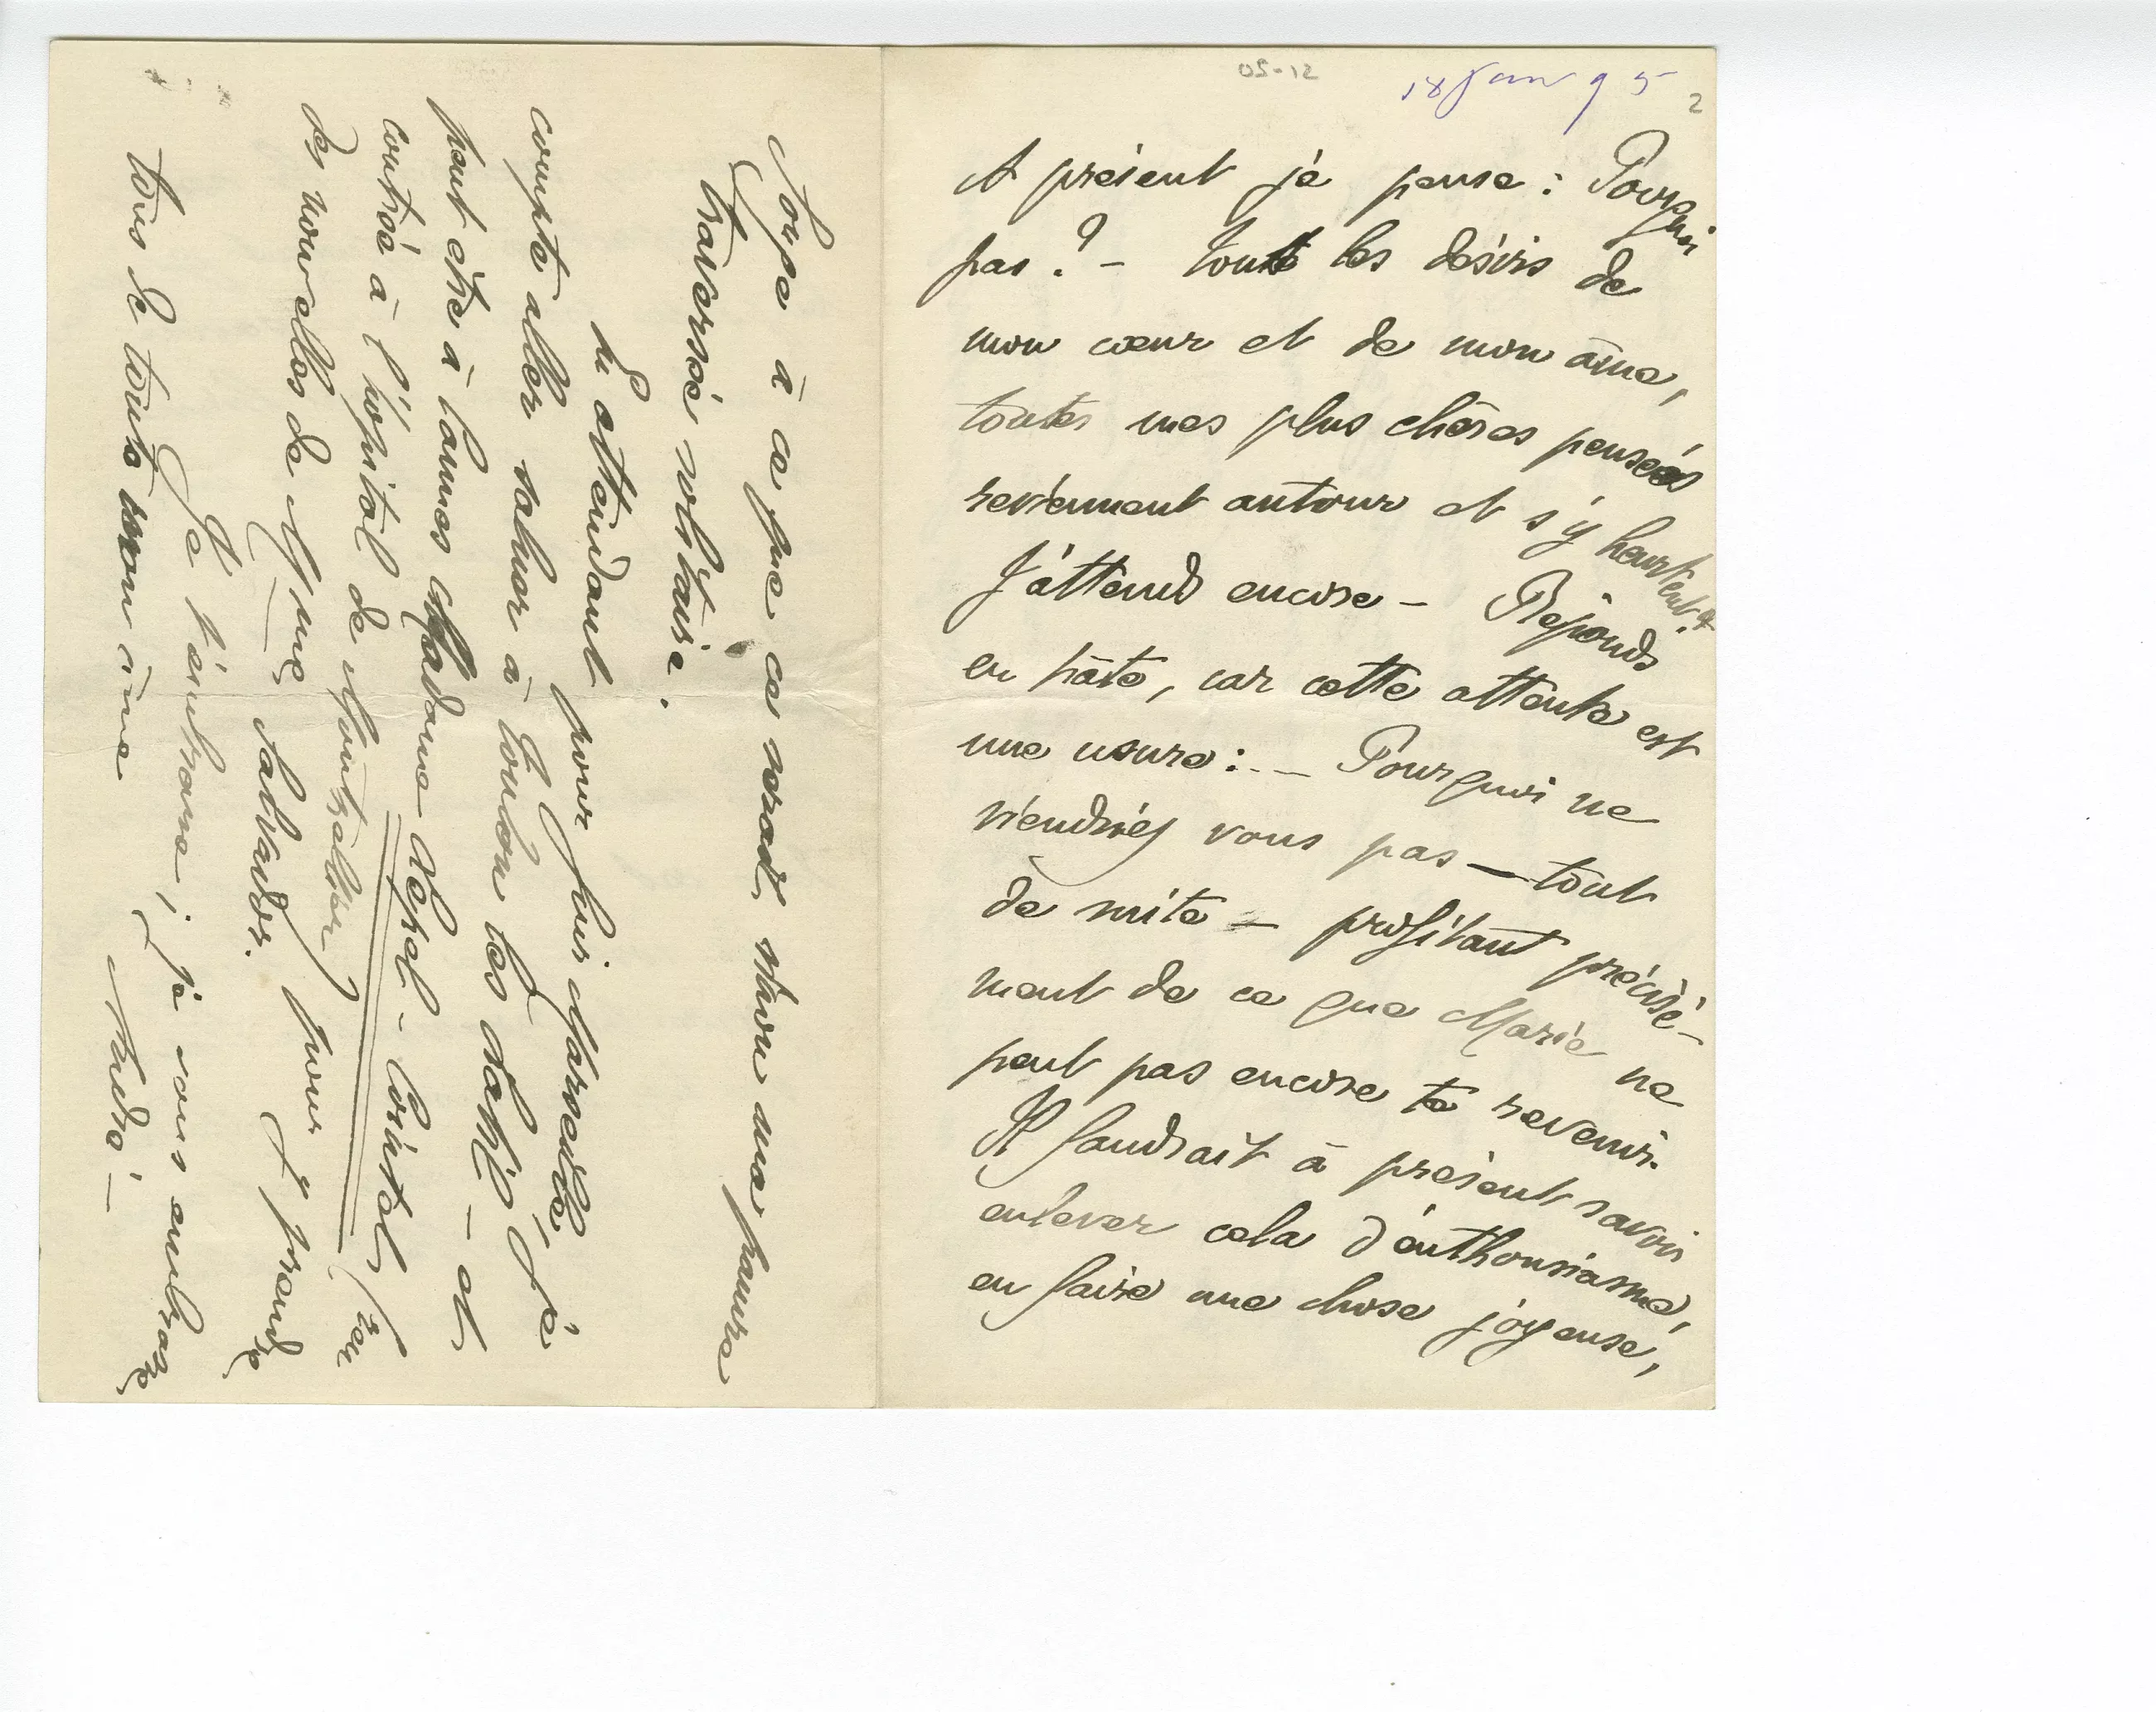 05-12
18 Janv 95
2
A présent je pense : Pourquoi
pas ? – tout les désirs de
mon cœur et de mon âme,
toutes mes plus chères pensées
reviennent autour et s'y heurtent. &
J'attends encore – Réponds
en hâte, car cette attente est
une usure : – Pourquoi ne
viendriez vous pas – tout
de suite – profitant précisé-
ment de ce que Marie ne
peut pas encore te revenir.
Il faudrait à présent savoir
enlever cela d'enthousiasme,
en faire une chose joyeuse,
Songe à ce que ce serait, sinon une pauvre
traversée solitaire.
En attendant pour fuir Marseille, je
compte aller saluer à Toulon les Latil – et
peut être à Cannes Madame Siegel – Cointet
contrée à l'hôpital de Montpellier) pour
des nouvelles de Mme Salvador. prendre
Je t'embrasse ; je vous embrasse
tous de toute mon âme
André –